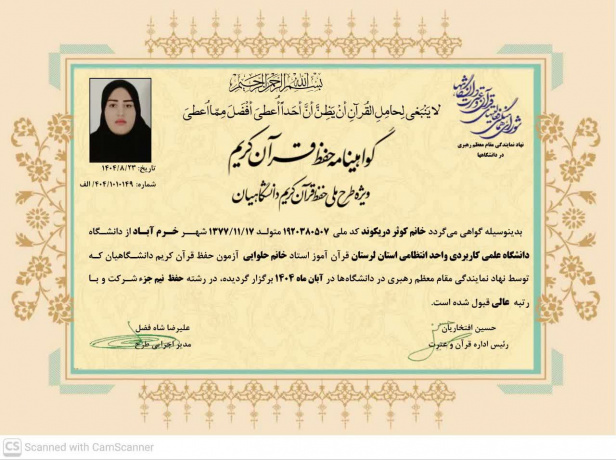 بسم الله الرحمن الرحیم
لا یَنْبَغی لِحامِلِ القُرآنِ أَنْ یَظِنَّ أَنَّ أَحَداً أُعطیَ أفْضَلَ مِمّا أُعطیَ
شورای هماهنگی فعالیتهای قرآن و عترت دانشگاهها
نهاد نمایندگی مقام معظم رهبری
در دانشگاهها
گواهینامه حفظ قرآن کریم
ویژه طرح ملی حفظ قرآن کریم دانشگاهیان
تاریخ: ۱۴۰۴/۸/۲۳
شماره: ۴۰۴/۱۰۱-۱۴۹/ الف
بدینوسیله گواهی می‌گردد خانم کوثر دریکوند کد ملی ۱۹۲۰۳۸۰۵۰۷ متولد ۱۳۷۷/۱۱/۱۷ شهر خرم آباد از دانشگاه
دانشگاه علمی کاربردی واحد انتظامی استان لرستان قرآن آموز استاد خانم حلوایی آزمون حفظ قرآن کریم دانشگاهیان که
توسط نهاد نمایندگی مقام معظم رهبری در دانشگاه‌ها در آبان ماه ۱۴۰۴ برگزار گردیده، در رشته حفظ نیم جزء شرکت و با
رتبه عالی قبول شده است.
حسین افتخاریان
رئیس اداره قرآن و عترت
علیرضا شاه فضل
مدیر اجرایی طرح
CS Scanned with CamScanner